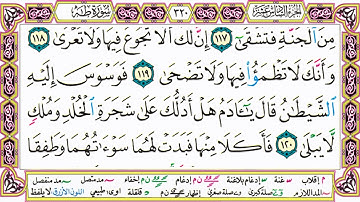 الجزء السادس عشر ٣٢٠ سورة طه
مِنَ ٱلْجَنَّةِ فَتَشْقَىٰٓ ١١٧ إِنَّ لَكَ أَلَّا تَجُوعَ فِيهَا وَلَا تَعْرَىٰ ١١٨
وَأَنَّكَ لَا تَظْمَؤُا۟ فِيهَا وَلَا تَضْحَىٰ ١١٩ فَوَسْوَسَ إِلَيْهِ
ٱلشَّيْطَـٰنُ قَالَ يَـٰٓـَٔادَمُ هَلْ أَدُلُّكَ عَلَىٰ شَجَرَةِ ٱلْخُلْدِ وَمُلْكٍ
لَّا يَبْلَىٰ ١٢٠ فَأَكَلَا مِنْهَا فَبَدَتْ لَهُمَا سَوْءَٰتُهُمَا وَطَفِقَا